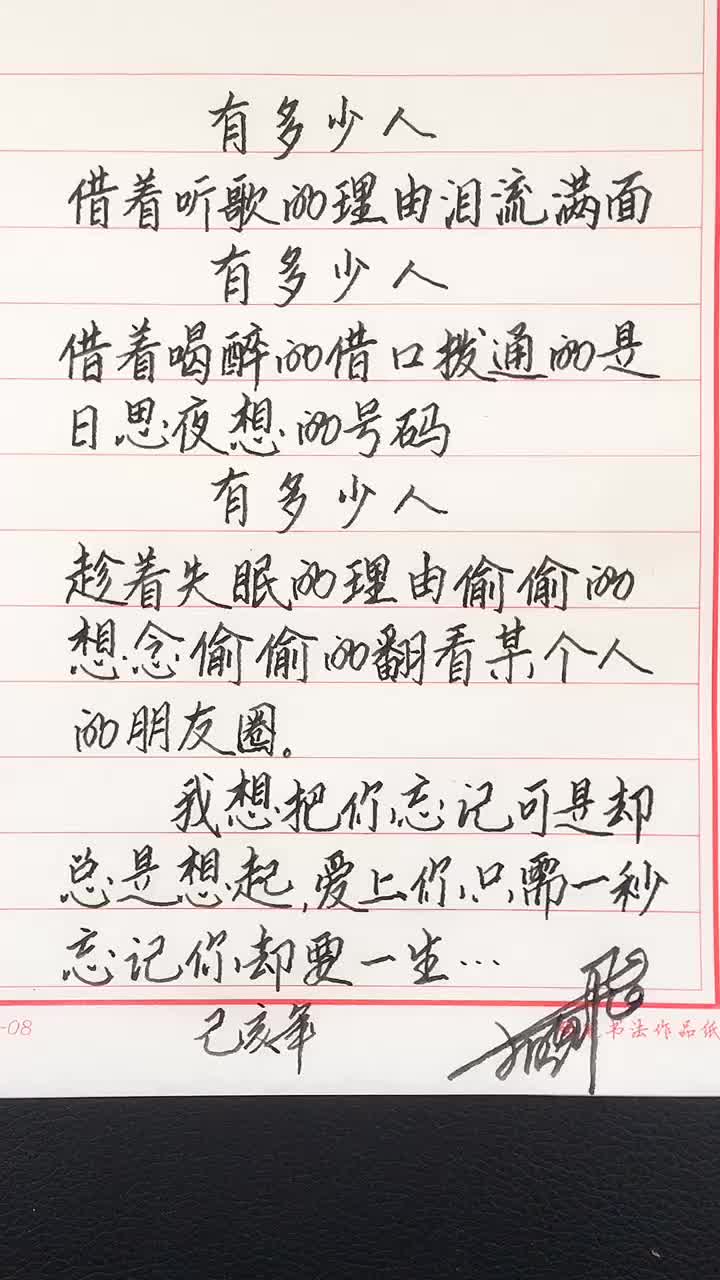 有多少人
借着听歌的理由泪流满面
有多少人
借着喝醉的借口拨通的是
日思夜想的号码
有多少人
趁着失眠的理由偷偷的
想念偷偷的翻看某个人
的朋友圈。
我想把你忘记可是却
总是想起,爱上你,只需一秒
忘记你却要一生…
己亥年
-08
书法作品纸